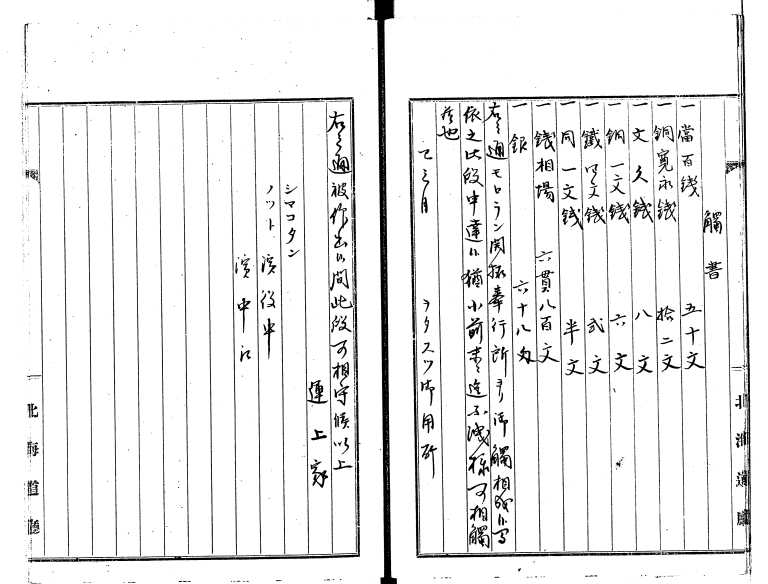 觸書
一 當百錢 五十文
一 銅寛永錢 拾二文
一 文久錢 八文
一 銅一文錢 六文
一 鐵四文錢 弐文
一 同一文錢 半文
一 錢相場 六貫八百文
一 銀 六十八匁
右之通モロラン開拓奉行所ヨリ御觸相成候間
依之此段申達候猶小前末々迄不洩様可相觸
者也
二月
ヲタスツ御用所
北海道廳
右之通被仰出候間此段可相守候以上
運上家
シマコタン
ノット 濱役中
濱中江
北海道廳